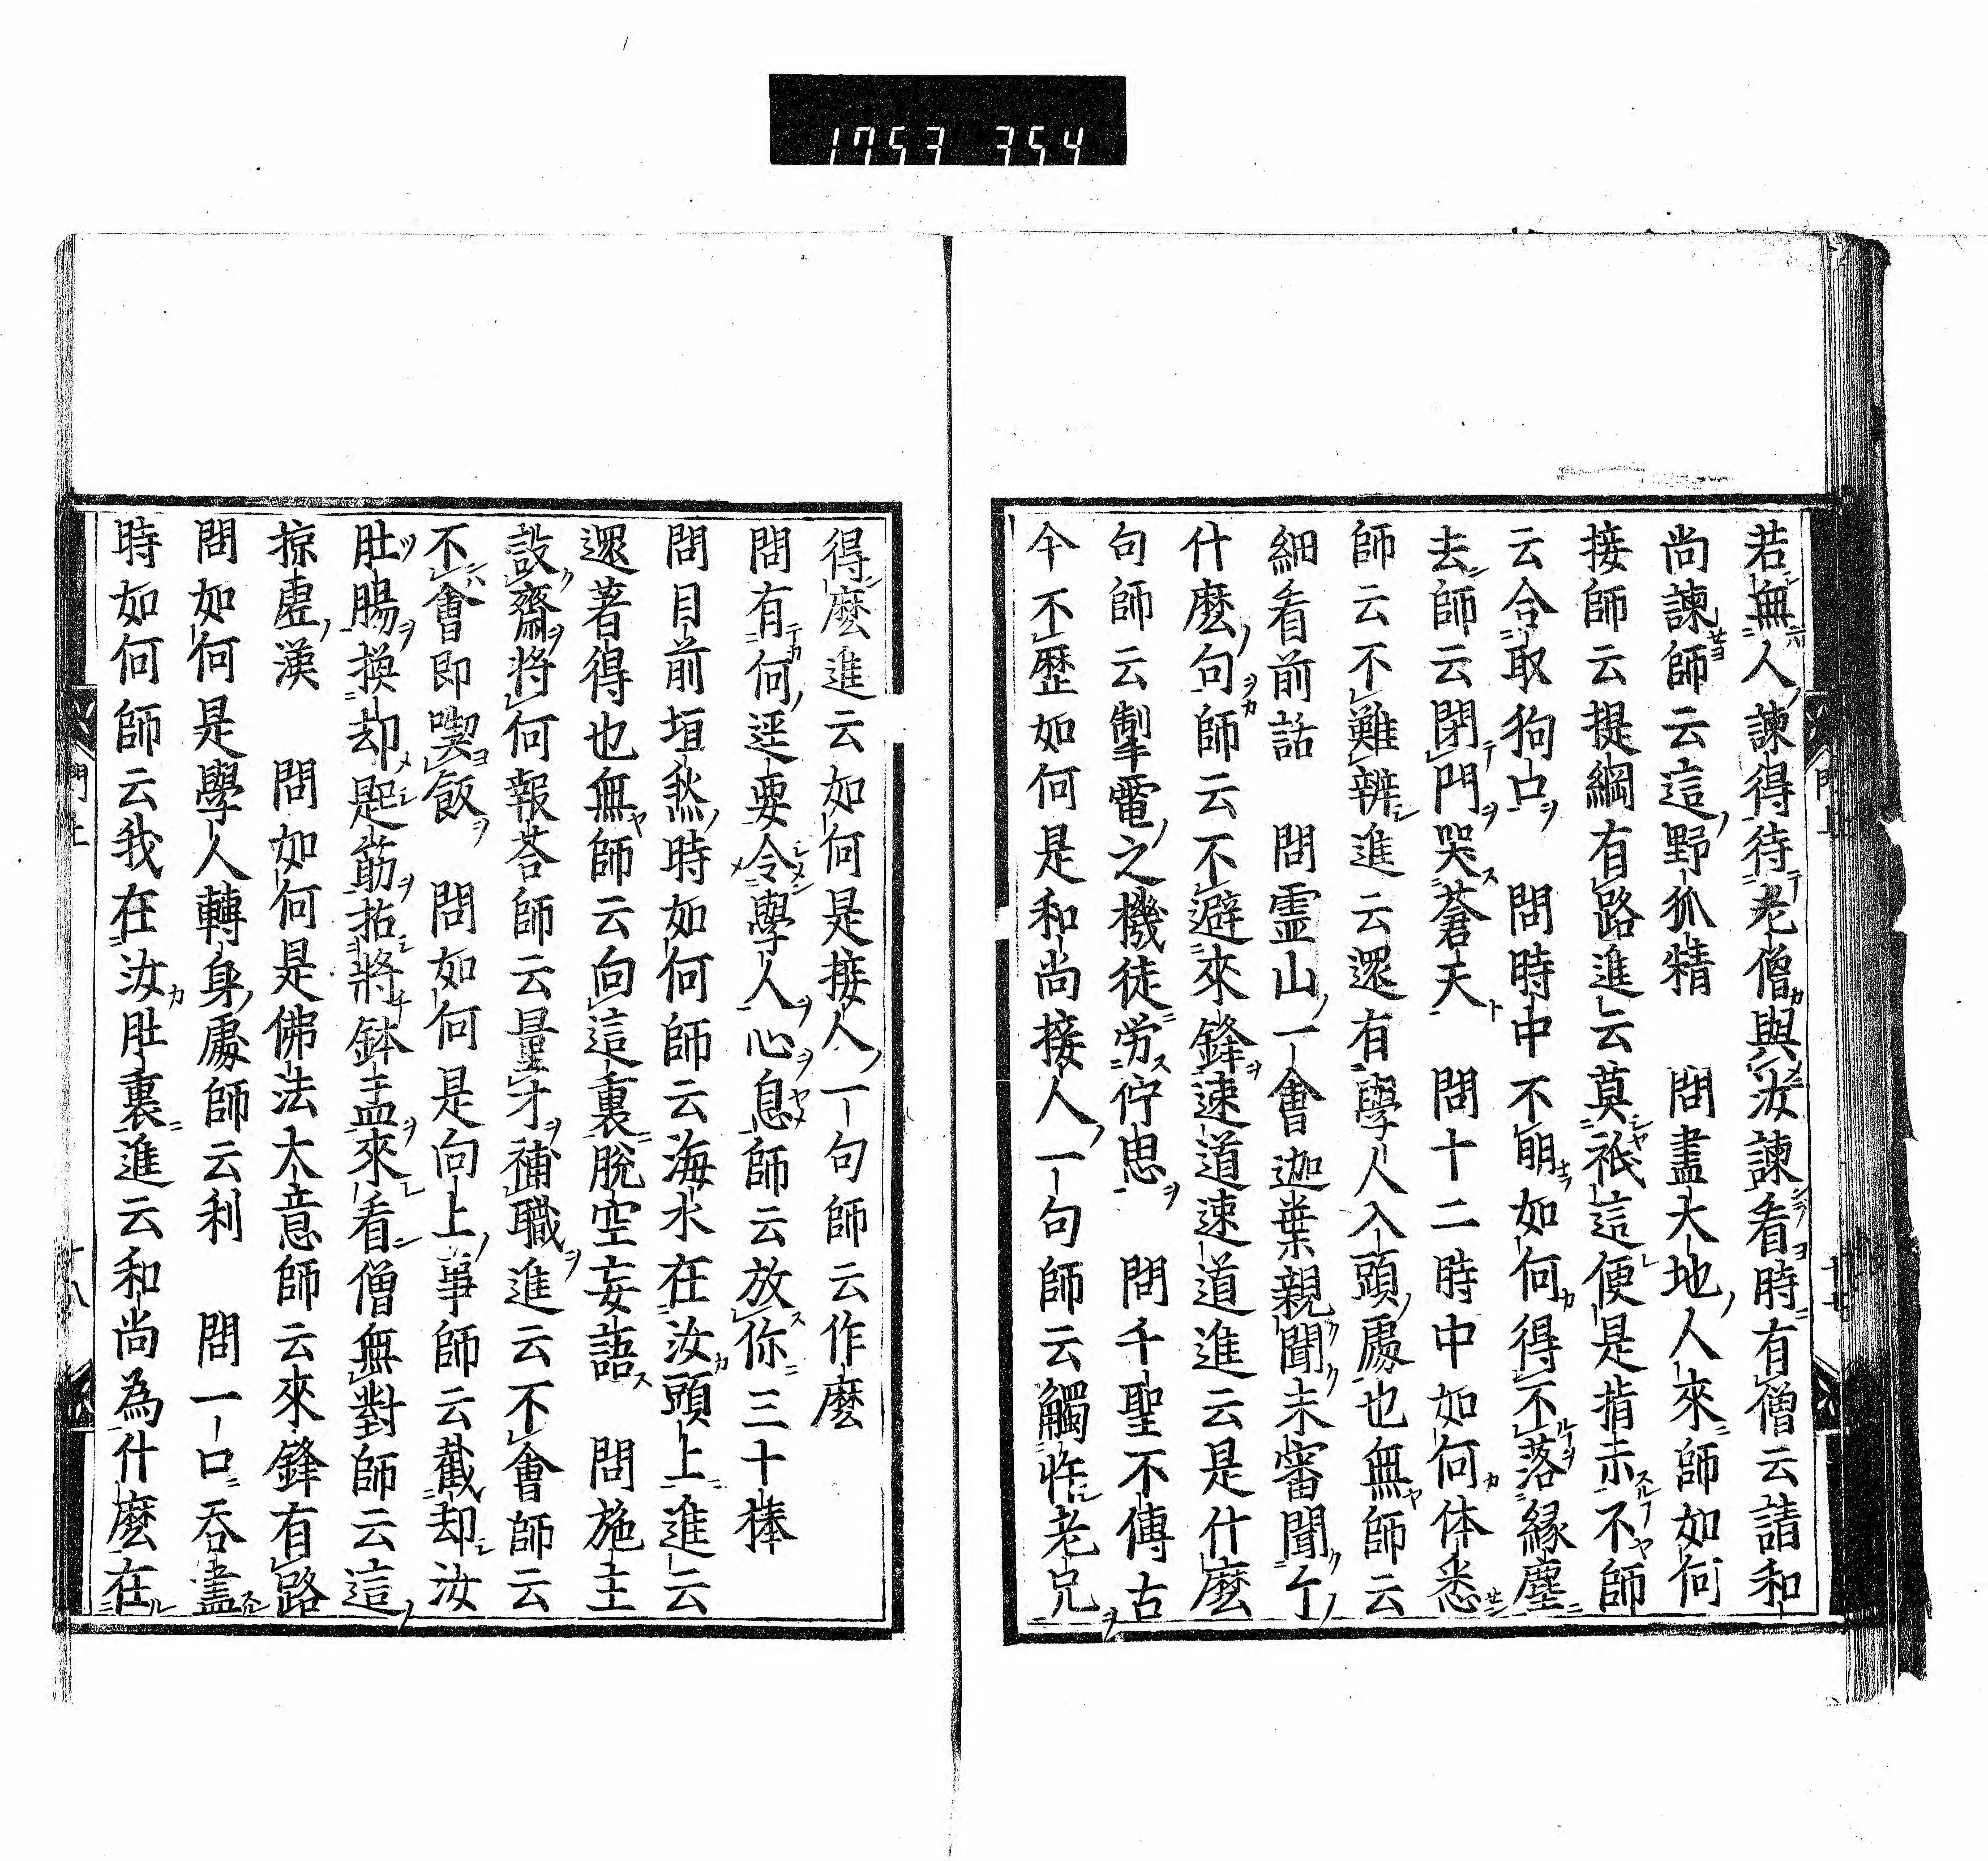 1753 354
若無人諫得待老僧與汝諫看時有僧云請和
尚諫師云這野狐精 問盡大地人來師如何
接師云提綱有路進云莫祇這便是指示不師
云合取狗口 問時中不明如何得不落緣塵
去師云閉門哭蒼天 問十二時中如何体悉
師云不難辨進云還有學人入頭處也無師云
細看前話 問霊山一會迦葉親聞未審聞个
什麼句師云不避來鋒速道速道進云是什麼
句師云掣電之機徒労佇思 問千聖不傳古
今不歷如何是和尚接人一句師云觸忤老兄
得麼進云如何是接人一句師云作麼
問有何逕要令學人心息師云放你三十棒
問目前垣然時如何師云海水在汝頭上進云
還著得也無師云向這裏脫空妄語 問施主
設齋將何報荅師云量才補職進云不會師云
不會即喫飯 問如何是向上事師云截却汝
肚腸換却匙筯拈將鉢盂來看僧無對師云這
掠虛漢 問如何是佛法大意師云來鋒有路
問如何是學人轉身處師云利 問一口吞盡
時如何師云我在汝肚裏進云和尚為什麼在
門上 十八